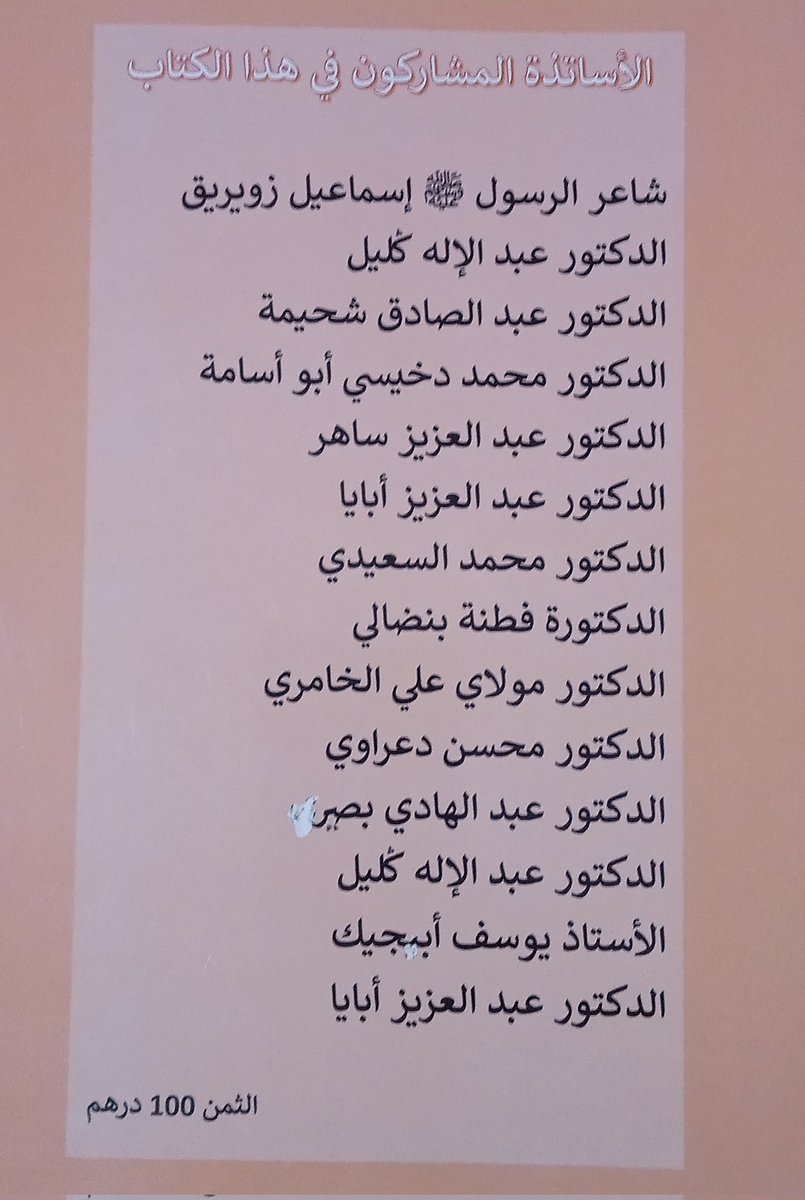 الأساتذة المشاركون في هذا الكتاب
شاعر الرسول ﷺ إسماعيل زويريق
الدكتور عبد الإله ݣليل
الدكتور عبد الصادق شحيمة
الدكتور محمد دخيسي أبو أسامة
الدكتور عبد العزيز ساهر
الدكتور عبد العزيز أبايا
الدكتور محمد السعيدي
الدكتورة فطنة بنضالي
الدكتور مولاي علي الخامري
الدكتور محسن دعراوي
الدكتور عبد الهادي
الدكتور عبد الإله ݣليل
الأستاذ يوسف
الدكتور عبد العزيز أبايا
الثمن 100 درهم